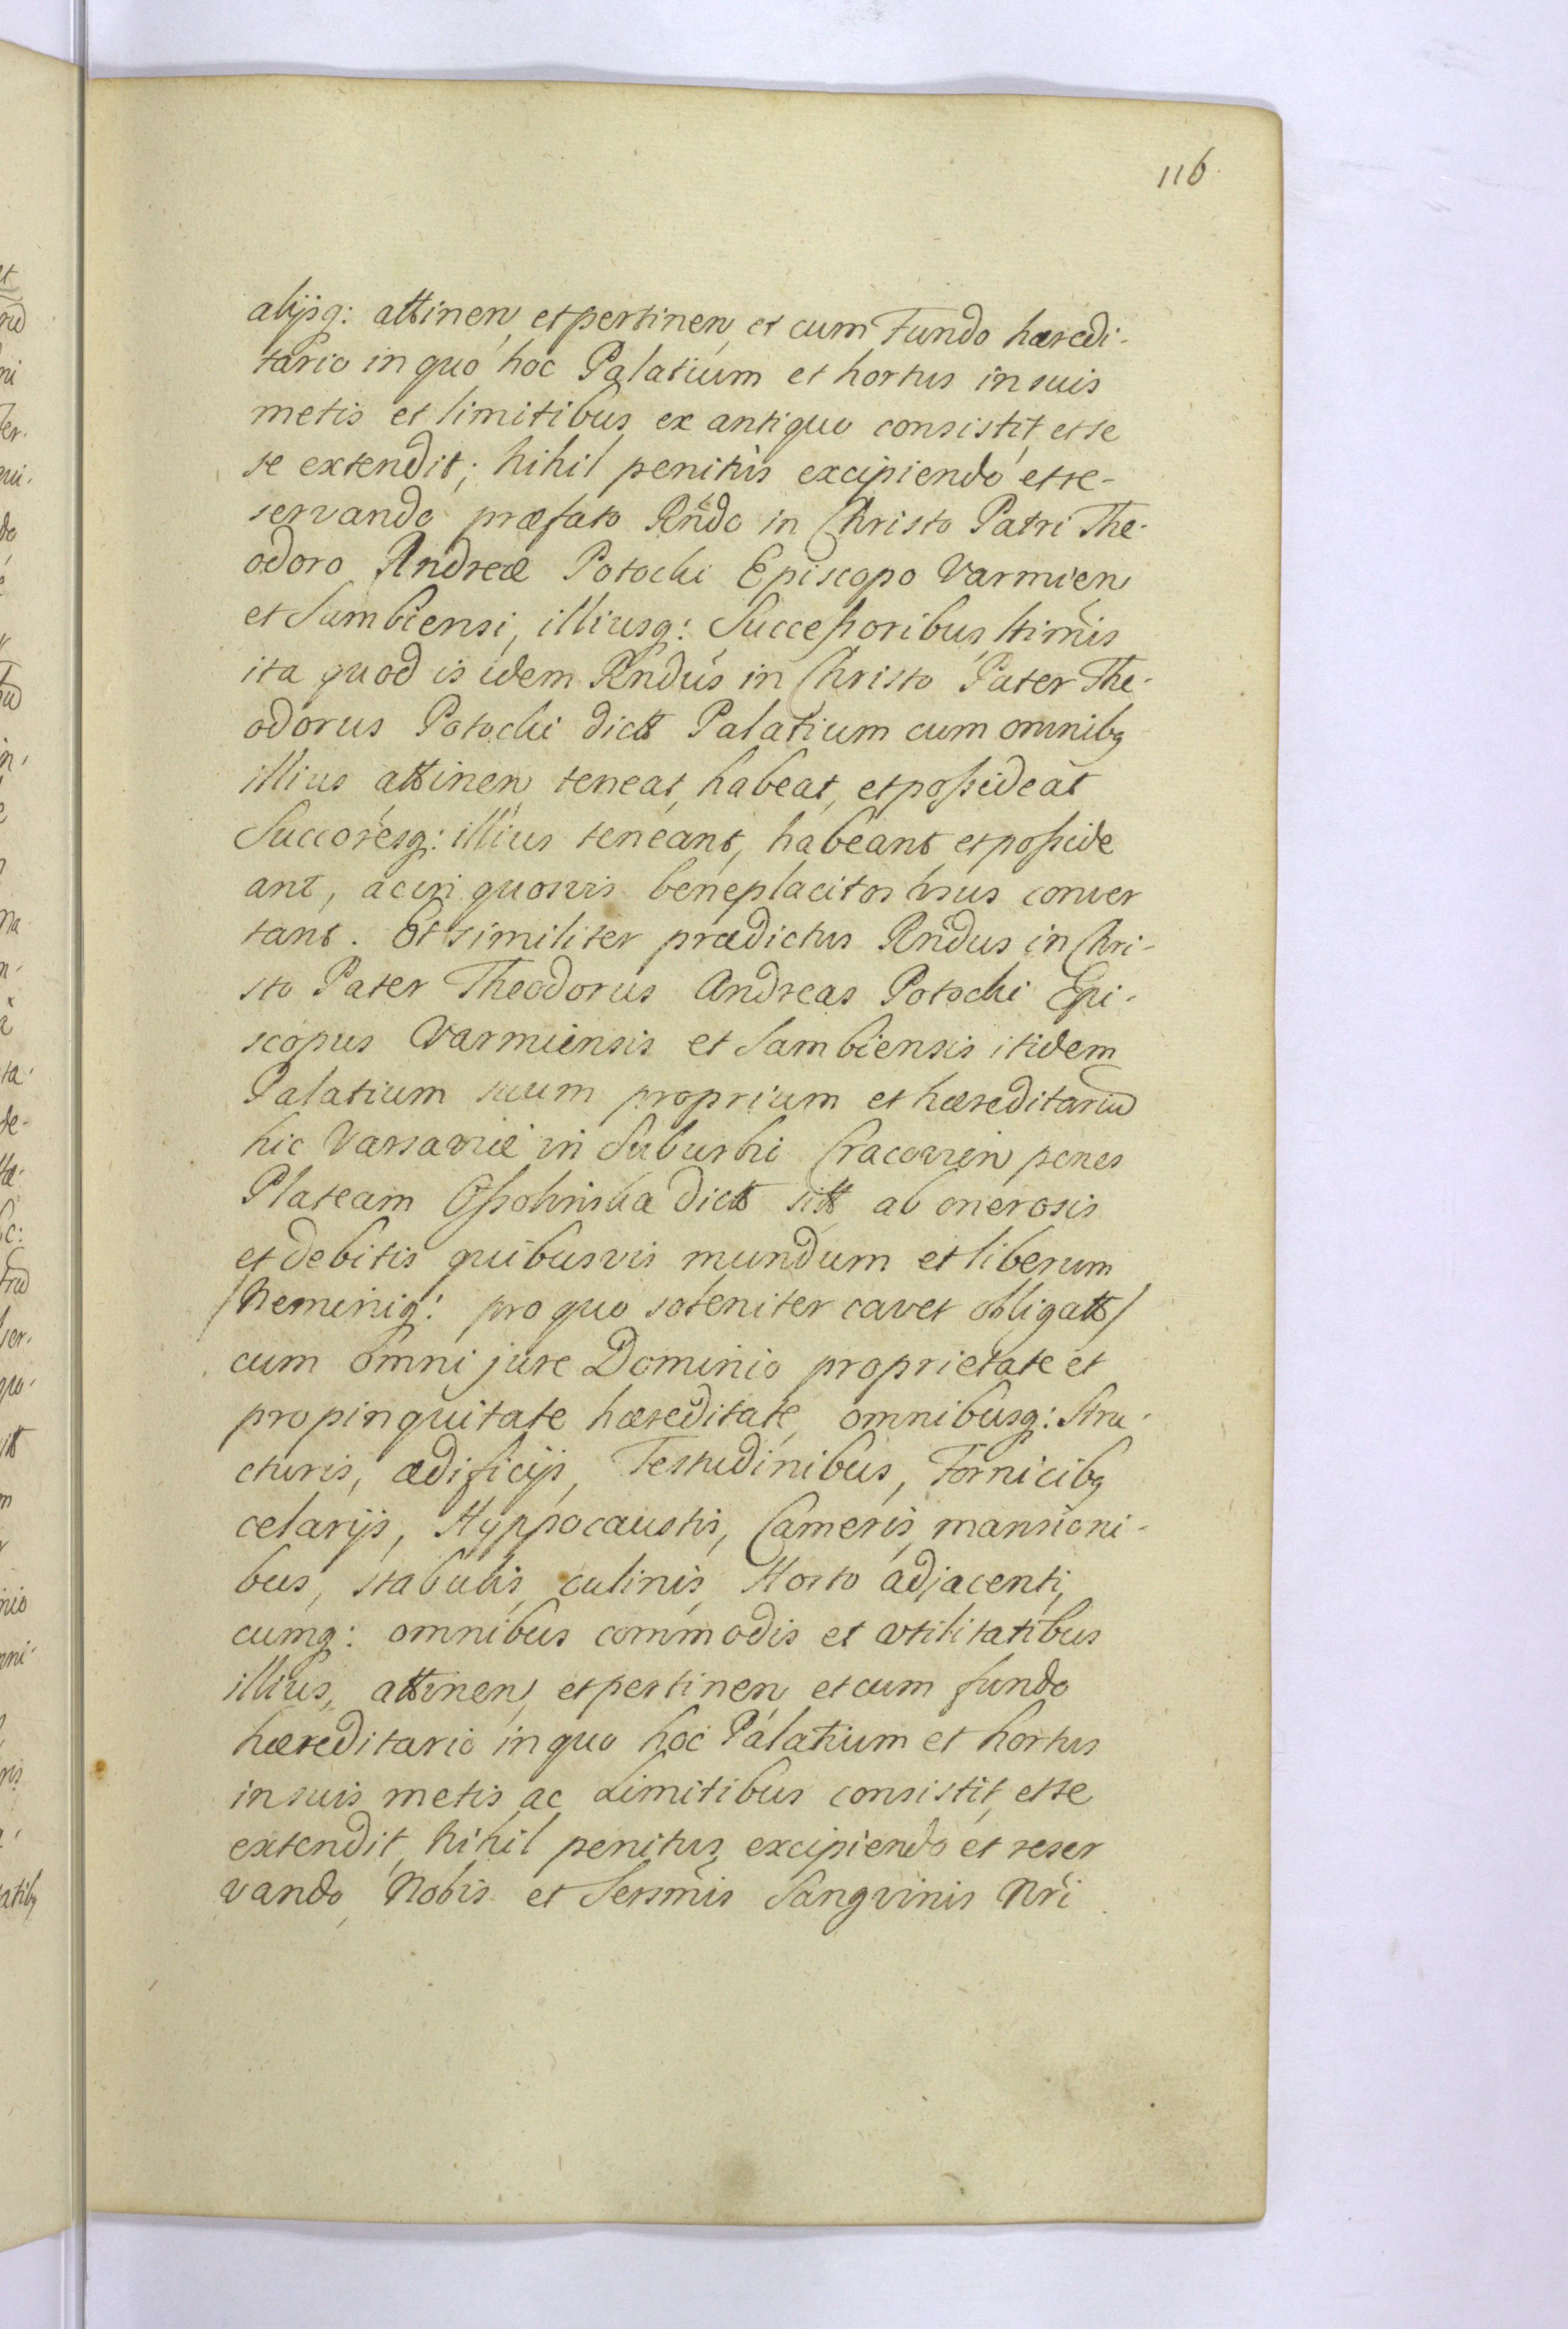 116
alijsq: attinen, et pertinen, et cum Fundo hæredi-
tario in quo hoc Palatium et hortus in suis
metis et limitibus ex antiquo consistit, et se
se extendit; Nihil penitùs excipiendo et re-
servando præfato Rndo in Christo Patri The-
odoro Andreæ Potocki Episcopo Varmien,
et Sambiensi, illiusq: Successoribus ltimis
ita quod is idem Rndus in Christo Pater The-
odorus Potocki dict Palatium cum omnibq
illius attinen, teneat, habeat, et possideat
Succoresq: illius teneant, habeant et posside
ant, ac in quosvis beneplacitos usus conver
tant. Et similiter prædictus Rndus in Chri-
sto Pater Theodorus Andreas Potocki Epi-
scopus Varmiensis et Sambiensis itidem
Palatium suum proprium et hæreditariũ
hic Varsaviæ in Suburbi Cracovien, penes
Plateam Ossolinska dict sitt ab onerosis
et debitis quibusvis mundum et liberum
/Neminiq: pro quo soleniter cavet obligatt/
cum omni jure Dominio proprietate et
propinquitate hæreditate, omnibusq: Stru-
cturis, ædificijs, Testudinibus, Fornicibq
celarijs, Hyppocaustis, Cameris, mansioni-
bus, stabulis, culinis, Horto adjacenti,
cumq: omnibus commodis et vtilitatibus
illius, attinen, et pertinen, et cum fundo
hæreditario in quo hoc Palatium et hortus
in suis metis ac Limitibus consistit, et se
extendit, Nihil penitus excipiendo et reser
vando, Nobis et Sersmis Sangvinis Nri